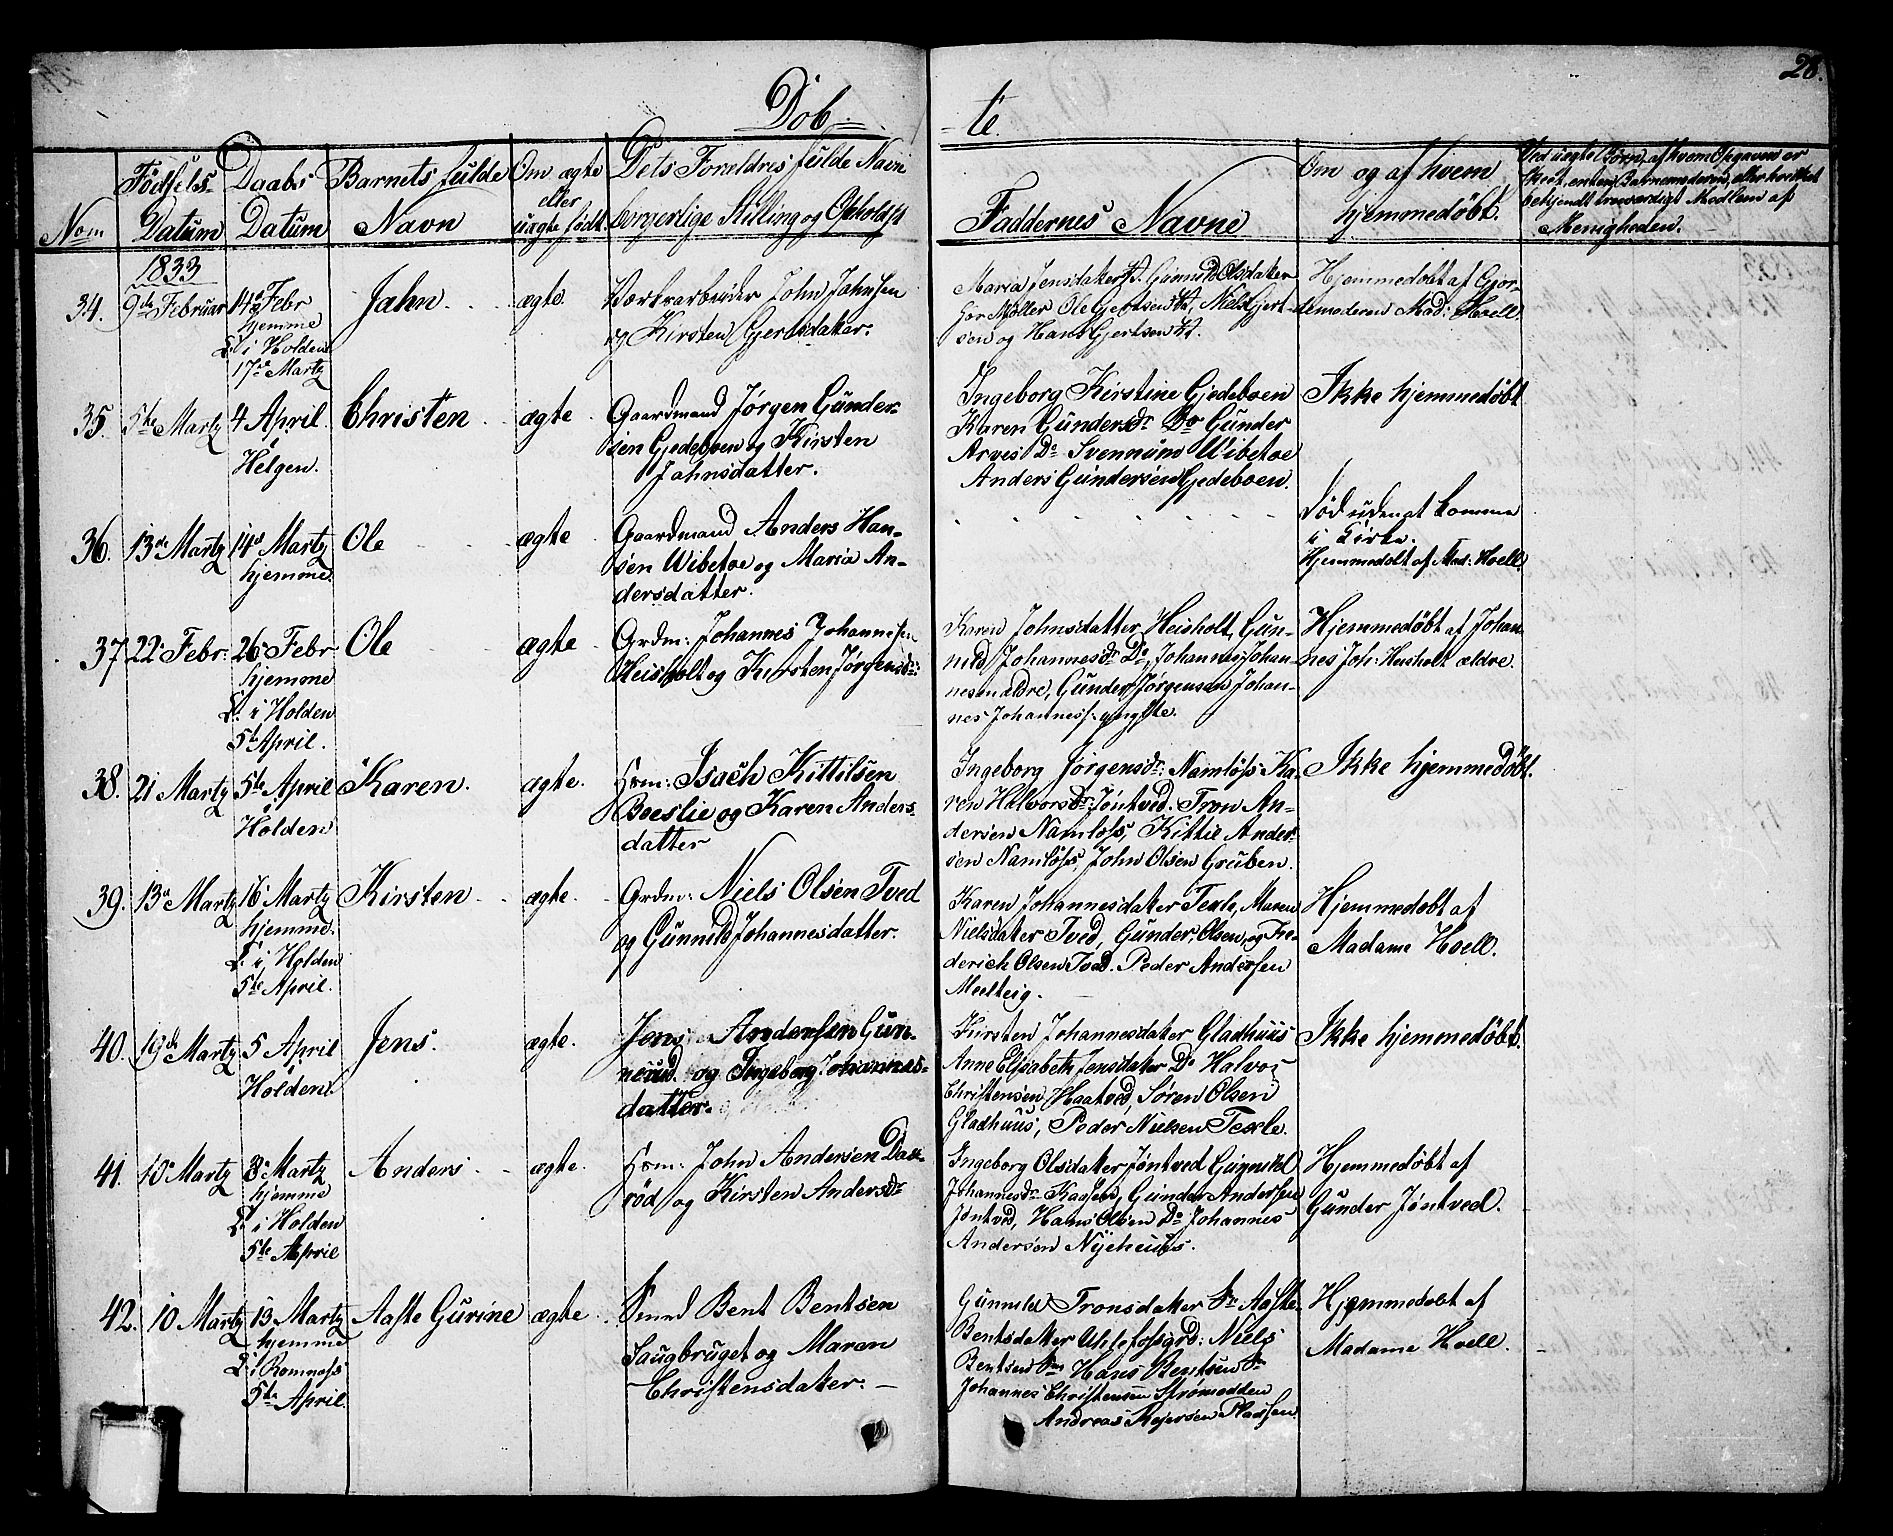 28.
Döb-
-te.
Nom
Födsels-
Datum
Daabs
Datum
Barnets fulde
Navn
Om ægte
eller
uægte född
Dets Foreldres fulde Navn
borgerlige Stilling og Opholdst
Faddernes Navne
Om og af hvem
hjemmedöbt.
Ved uegte Börn, af hvem Opgaven er
skeet, enten Barnemoderen, eller hvilket
bekjendt troeværdigt Medlem af
Menigheden.
1833
34.
9de Februar
14de Febr
hjemme
D. i Holden
17de Martz
Jahn
ægte.
Værkarbeider John Johnsen
og Kirsten Gjertsdater.
Maria Jensdater, Gunnild Olsdater
Möller Ole Gjertsen, Niels Gjert-
sen og Hans Gjertsen
Hjemmedöbt af Gjor-
demoderen Mad: Hoell.
35.
5te Martz
4 April
Helgen.
Christen
ægte
Gaardmand Jörgen Gunder-
sen Gjedeboen og Kirsten
Jahnsdatter.
Ingeborg Kirstine Gjedeboen
Karen Gundersdr Do Gunder
Arves Do Svennum Wibetoe
Anders Gundersen Gjedeboen.
Ikke hjemmedöbt
36.
13de Martz
14de Martz
hjemme.
Ole
ægte
Gaardmand Anders Han-
sen Wibetoe og Maria An-
dersdatter.
Död uden at komme
i Kirke.
Hjemmedöbt af Mad: Hoell.
37.
22 Febr:
26 Febr
hjemme
D. i Holden
5te April.
Ole
ægte
Grdm: Johannes Johannesen
Heisholt og Kirsten Jörgensdr:
Karen Johnsdatter Heisholt, Gun-
nild Johannesdr Do, Johannes Johan-
nesen ældre, Gunder Jörgensen Johan-
nes Johanness: yngste.
Hjemmedöbt af Johan-
nes Joh: Heisholt ældre.
38.
21 Martz
5te April
Holden
Karen.
ægte.
Hsm: Isach Kittilsen
Boeslie og Karen Anders-
datter
Ingeborg Jörgensdr: Namlöss Ka-
ren Halvorsdr: Jöntved. Tron An-
dersen Namlöss, Kittil Ander-
sen Namlöss, John Olsen Gruben.
Ikke hjemmedöbt.
39.
13de Martz
16 Martz
hjemme.
D. i Holden
5te April.
Kirsten
ægte.
Grdm: Niels Olsen Tved
og Gunnild Johannesdatter.
Karen Johannesdater Texle, Maren
Nielsdater Tved, Gunder Olsen, og Fre-
derich Olsen Tved. Peder Andersen
Meelteig.
Hjemmedöbt af
Madame Hoell.
40.
19de Martz
5 April
Holden.
Jens.
ægte.
Jens Andersen Gun-
neud. og Ingeborg Johannes-
datter.
Kirsten Johannesdater Gladhuus
Anne Elisabeth Jensdater Do Halvor
Christensen Haatved, Sören Olsen
Gladhuus, Peder Nielsen Texle.
Ikke hjemmedöbt.
41.
10 Martz
3 Martz
hjemme
D. i Holden
5te April
Anders
ægte.
Hsm: John Andersen Dae-
röd og Kirsten Andersdr
Ingeborg Olsdater Jöntved Gunnild
Johannesdr Kaasen, Gunder Andersen
Jöntved, Hans Olsen Do Johannes
Andersen Nyehuus.
Hjemmedöbt af
Gunder Jöntved.
42.
10 Martz
13 Martz
hjemme
D. i Romnæss
5te April.
Aaste Gurine
ægte
Smed Bent Bentsen
Saugbruget og Maren
Christensdater.
Gunnild Tronsdater Aaste
Bentsdater Uhlefosgrd: Niels
Bentsen Hans Bentsen
Johannes Christensen Strömodden
Andreas Mejersen Pladsen
Hjemmedöbt af
Madame Hoell.